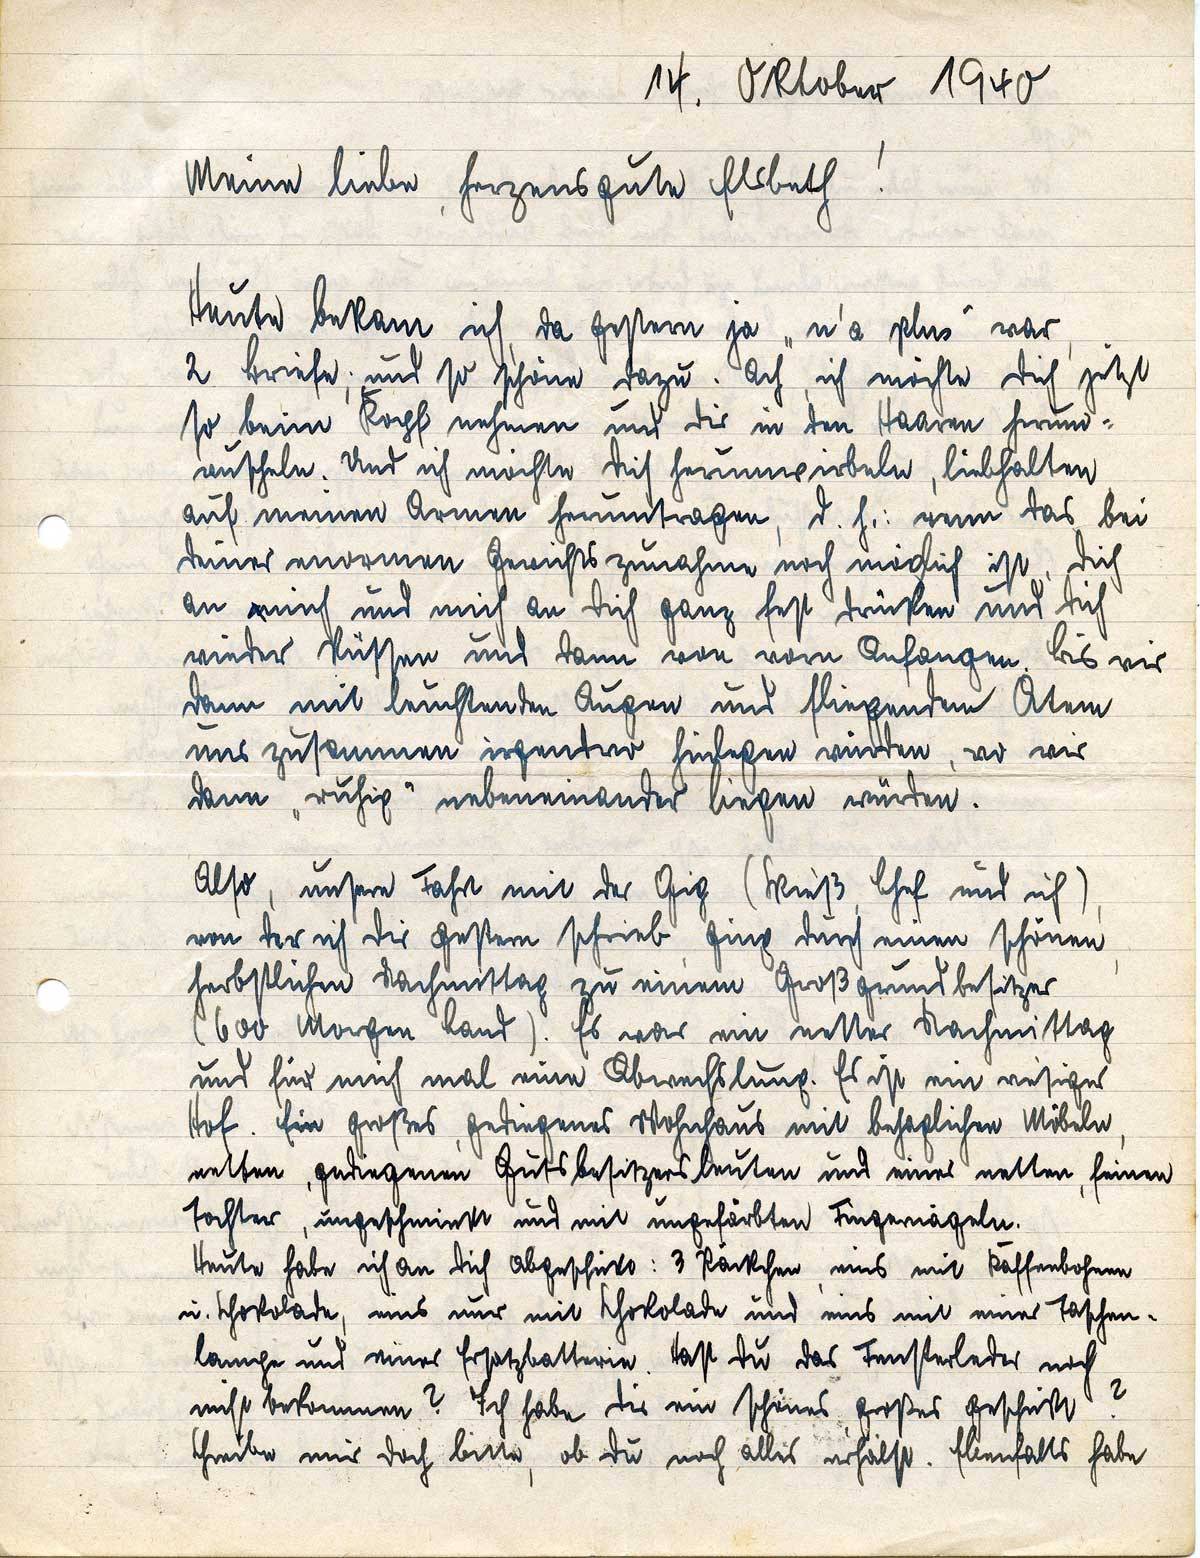 14. Oktober 1940
Meine liebe, herzensgute Elsbeth!
Heute bekam ich, da gestern ja „n'a plus" war,
2 Briefe, und so schöne dazu. Ach, ich möchte Dich jetzt
so beim Kopf nehmen und Dir in den Haaren herum-
wuscheln. Und ich möchte Dich herumwirbeln, liebhalten,
auf meinen Armen herumtragen, d. h.: wenn das bei
deiner enormen Gewichtszunahme noch möglich ist, Dich
an mich und mich an Dich ganz fest drücken und Dich
wieder küssen und dann von vorn Anfangen. Bis wir
dann mit leuchtenden Augen und fliegendem Atem
uns zusammen irgendwo hinlegen würden, wo wir
dann „ruhig" nebeneinander liegen würden.
Also, unsere Fahrt mit der Gig ( Chef und ich),
von der ich Dir gestern schrieb, ging durch einen schönen,
herbstlichen Nachmittag zu einem Großgrundbesitzer
(600 Morgen Land). Es war ein netter Nachmittag
und für mich mal eine Abwechslung. Es ist ein riesiger
Hof. Ein großes, gediegenes Wohnhaus mit behaglichen Möbeln,
netten, gediegenen Gutsbesitzersleuten und einer netten, feinen
Tochter, ungeschminkt und mit ungefärbten Fingernägeln.
Heute habe ich an Dich abgeschickt: 3 Päckchen, eins mit Kaffeebohnen
u. Schokolade, eins nur mit Schokolade und eins mit einer Taschen-
lampe und einer Ersatzbatterie. Hast Du das Fensterleder noch
nicht bekommen? Ich habe Dir ein schönes, großes geschickt?
Schreibe mir doch bitte, ob Du noch alles erhälst. Ebenfalls habe